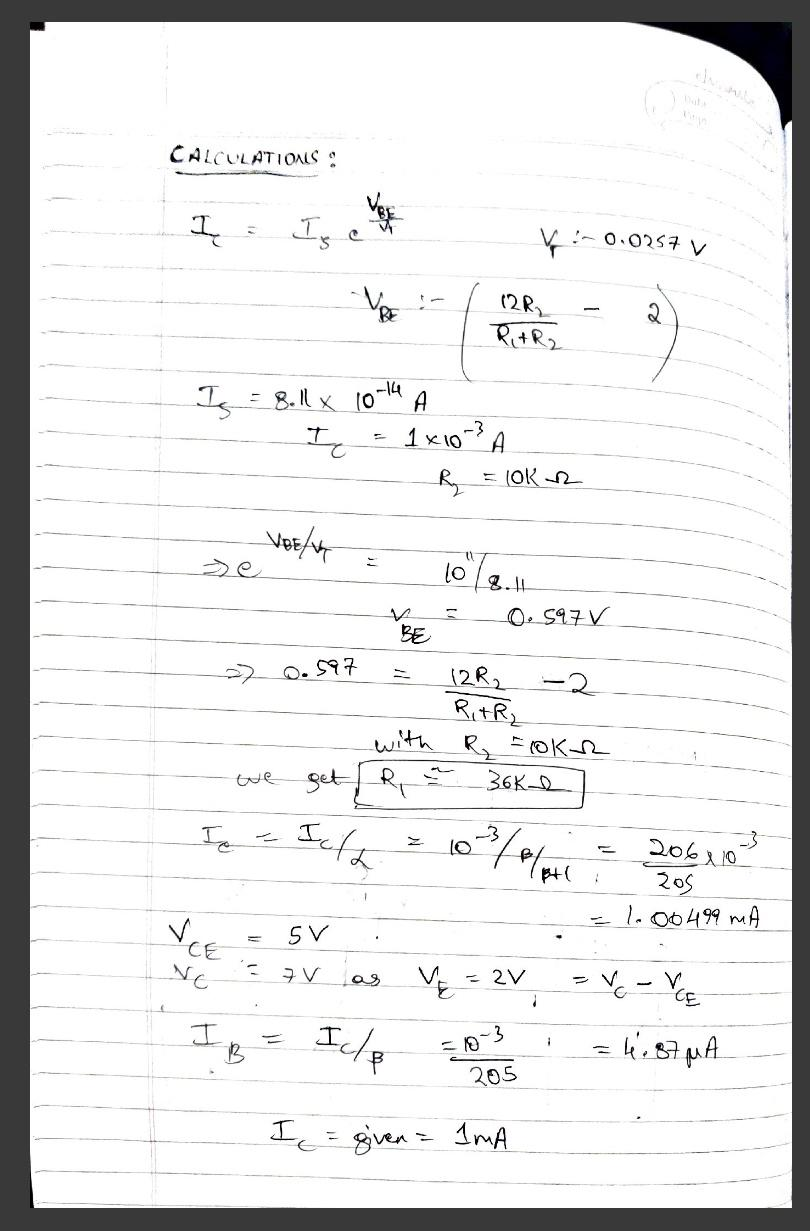 CALCULATIONS :
I_C = I_S e^(V_BE/V_T)    V_T :- 0.0257 V
V_BE :- ( 12R_2 / (R_1+R_2) - 2 )
I_S = 8.11 x 10^-14 A
I_C = 1 x 10^-3 A
R_2 = 10K Ω
⇒ e^(V_BE/V_T) = 10^11 / 8.11
V_BE = 0.597 V
⇒ 0.597 = 12R_2 / (R_1+R_2) - 2
with R_2 = 10K Ω
we get R_1 ≃ 36K Ω
I_e = I_C/α = 10^-3 / β/β+1 = 206 x 10^-3 / 205
= 1.00499 mA
V_CE = 5V
V_C = 7V as V_E = 2V, = V_C - V_CE
I_B = I_C/β = 10^-3 / 205 = 4.87 μA
I_C = given = 1mA